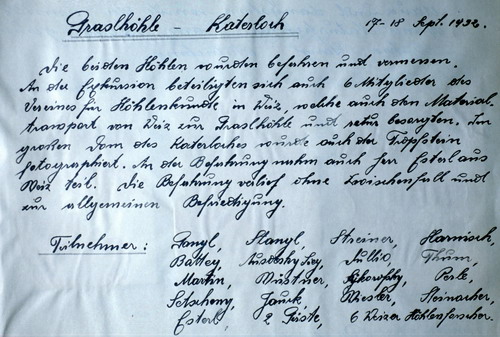 Draslhöhle - Katerloch 17-18 Sept. 1932.
Die beiden Höhlen wurden befahren und vermessen.
An der Exkursion beteiligten sich auch 6 Mitglieder des
Vereines für Höhlenkunde in Weiz, welche auch den Material-
transport von Weiz zur Draslhöhle und retur besorgten. Im
großen Dom des Katerloches wurde auch der Tropfstein
fotographiert. An der Befahrung nahm auch Herr Esterl aus
Weiz teil. Die Befahrung verlief ohne Zwischenfall und
zur allgemeinen Befriedigung.
Teilnehmer: Gangl, Stangl, Streiner, Harnisch,
Battey, Thum,
Martin, Wustner, Perle,
Jauck, Wiesler, Steinacher,
Esterl, 2 Gäste, 6 Weizer Höhlenforscher.